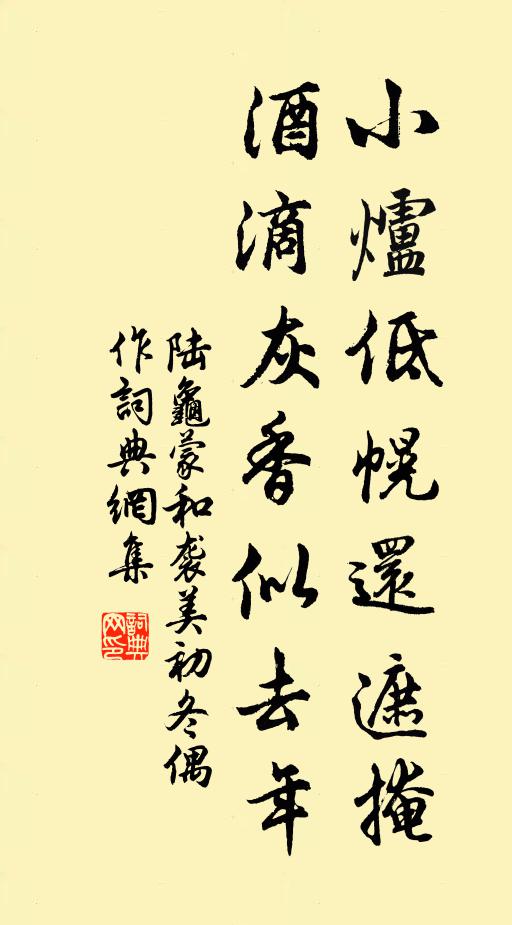 小爐低幌還遮掩
酒滴灰香似去年
陸龜蒙和袭美初冬偶
作詞典網集
詞典网印